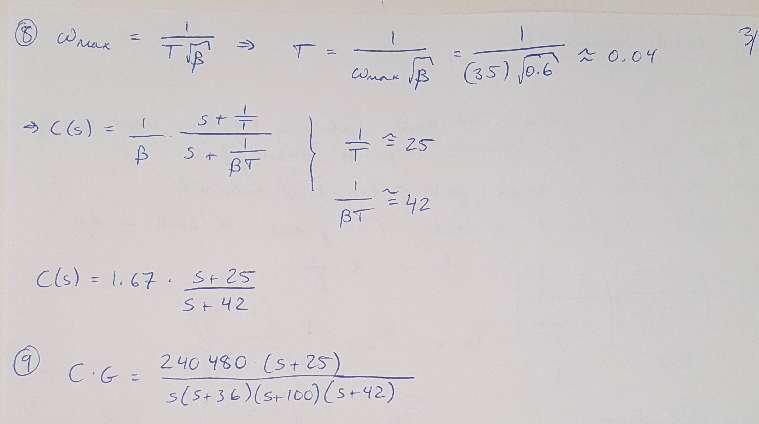 ⑧ ωmax = 1/(T√β) ⇒ T = 1/(ωmax √β) = 1/((35)√0.6) ≈ 0.04
3/
⇒ C(s) = 1/β · (s + 1/T)/(s + 1/(βT)) } 1/T ≅ 25
1/(βT) ≅ 42
C(s) = 1.67 · (s+25)/(s+42)
⑨ C·G = 240 480 (s+25)/(s(s+36)(s+100)(s+42))